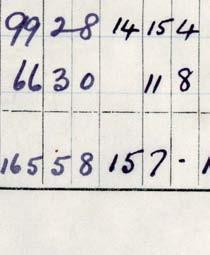 99 2 8 14 15 4
66 3 0 11 8
165 5 8 15 7 -